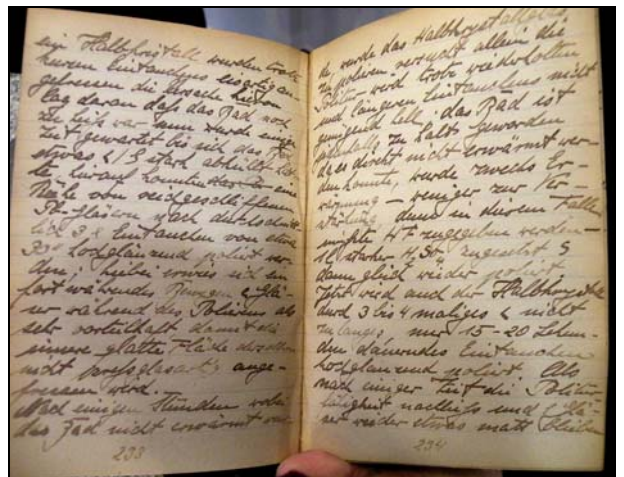 ein Halbkristall wurden trotz
kurzen Eintauchens engstigen-
gefressen die ursache hievon
lag daran daß das Bad noch
zu heiß war nun wurde einige
Zeit gewartet bis sich das Bad
etwas stark abkühlt hat-
te, hierauf konnten eine
Reihe von seidgeschliffenen
Pb-gläsern nach durchschnitt-
lich 3 Eintauchen von etwa
30 hochglänzend poliert wer-
den; hiebei erwies sich ein
fortwährendes Bewegen Glä-
ser während des Polierens als
sehr vorteilhaft damit die
innere glatte Fläche derselben
nicht preßglasartig ange-
fressen wird.
Nach einigen Stunden wobei
das Bad nicht erwärmt wur-
233
de, wurde das Halbkrystallglas
zu polieren versucht allein die
Politur wird trotz wiederholten
und längeren Eintauchens nicht
genügend hell, das Bad ist
jedenfalls zu kalt geworden
da es direkt nicht erwärmt wer-
den konnte, wurde zwecks Er-
wärmung – weniger zur Ver-
stärkung denn in diesem Falle
müßte HF zugegeben werden –
1 l starker H2SO4 zugesetzt &
dann gleich wieder poliert.
Jetzt wird auch der Halbkrystall
durch 3 bis 4 maliges & nicht
zu langes nur 15-20 Sekun-
den dauerndes Eintauchen
hochglänzend poliert. Als
nach einiger Zeit die Politur-
tätigkeit nachließ und Glä-
ser wieder etwas matt blieben
234